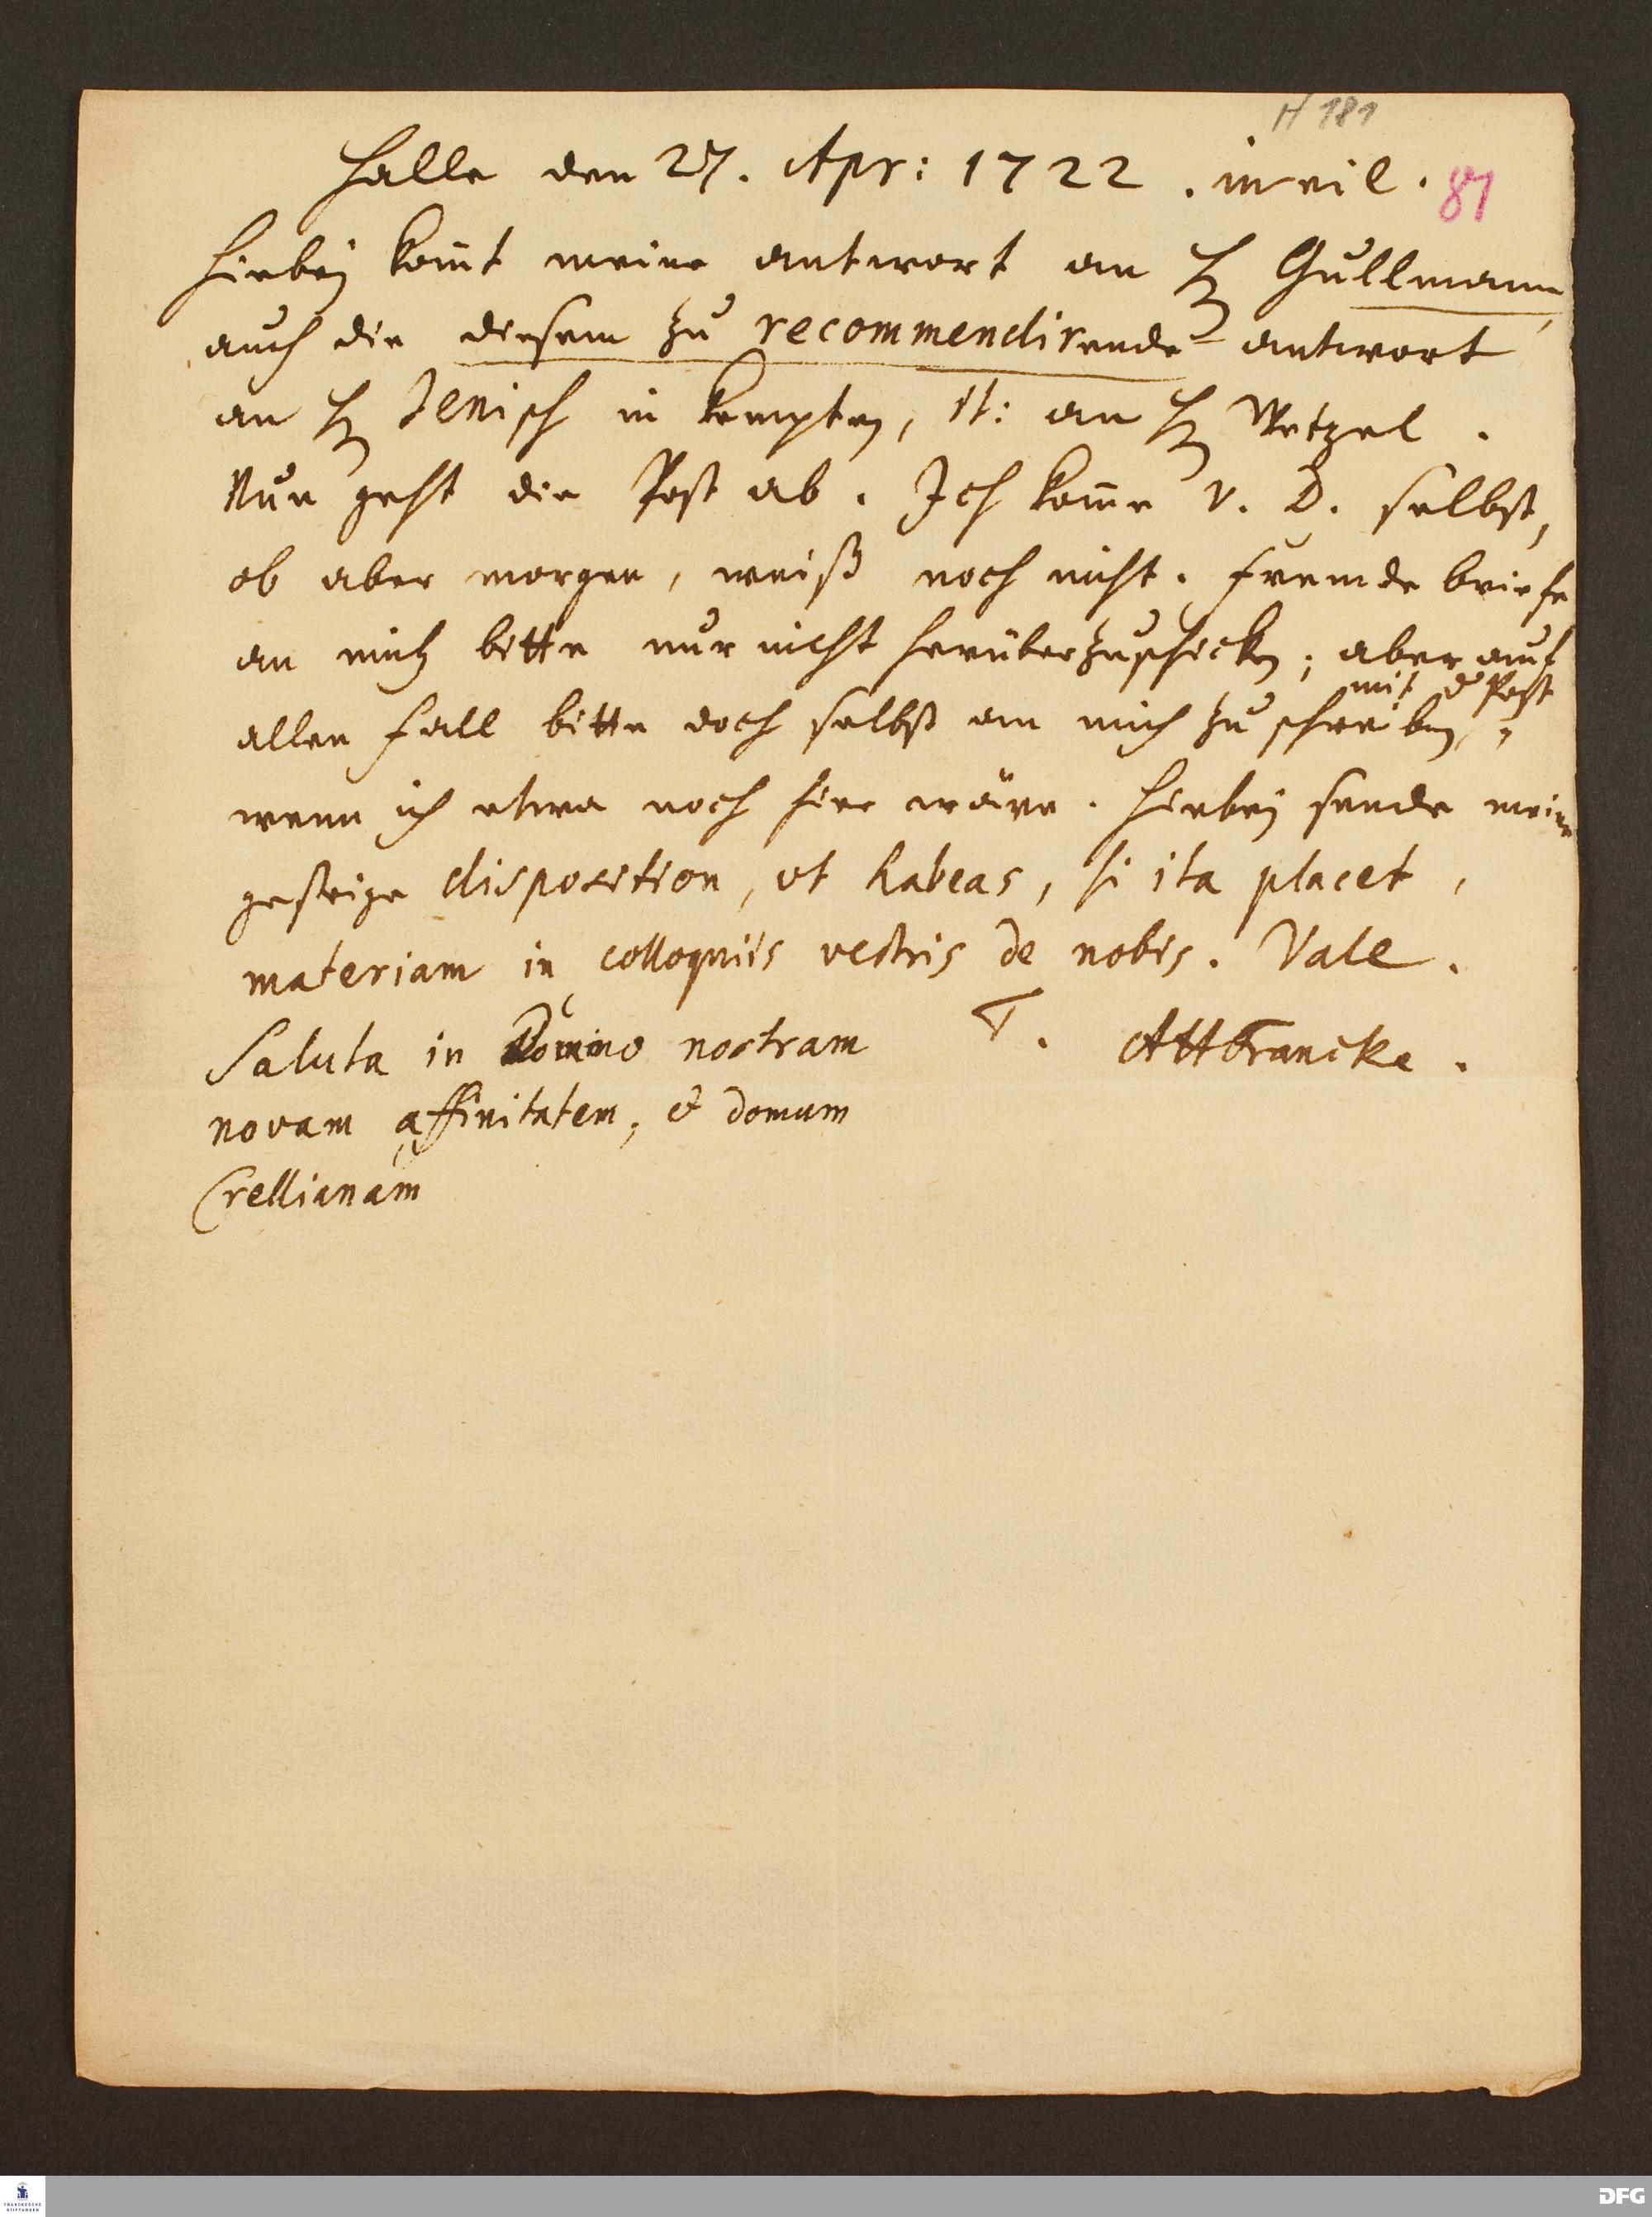 H 181
Halle den 27. Apr: 1722. in eil.
81
Hiebey kom̅t meine antwort an H Gullmann,
auch die diesem zu recommendirende antwort
an H Jenisch in Kempten, it: an H Wetzel.
Nun geht die Post ab. Ich kom̅e v. D. selbst,
ob aber morgen, weiß noch nicht. Fremde briefe
an mich bitte nur nicht herüberzuschicken; aber auf
mit d Post
allen Fall bitte doch selbst an mich zu schreiben,
wenn ich etwa noch hier wäre. Hiebey sende meine
gestrige disposition, ut habeas, si ita placet,
materiam in colloquiis vestris de nobis. Vale.
T. AHFrancke.
Saluta in Domino nostram
novam affinitatem, & domum
Crellianam
FRANCKESCHE STIFTUNGEN
DFG